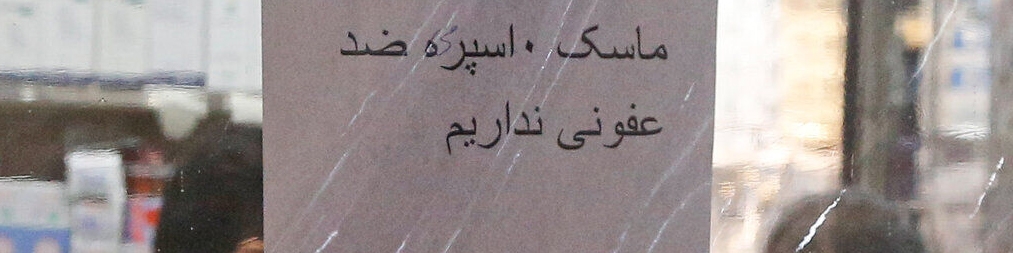 ماسک ۰اسپره ضد
عفونی نداریم